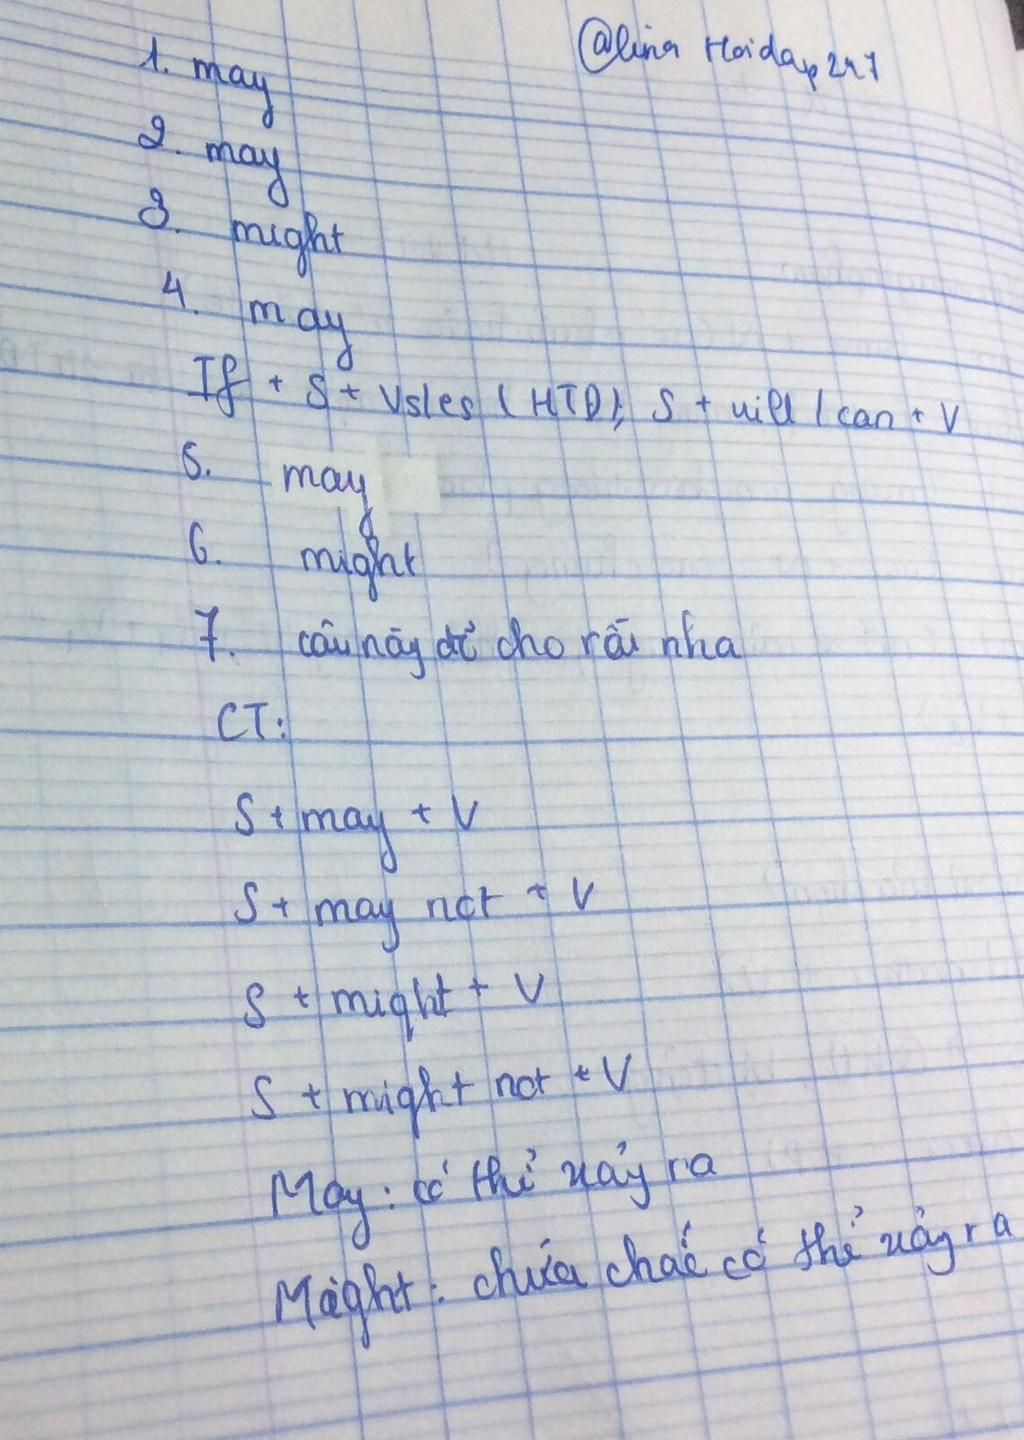 @lina Hoidap247
1. may
2. may
3. might
4. may
If + S + Vs/es (HTĐ), S + will / can + V
5. may
6. might
7. câu này đề cho rồi nha
CT:
S + may + V
S + may not + V
S + might + V
S + might not + V
May: có thể xảy ra
Might: chưa chắc có thể xảy ra